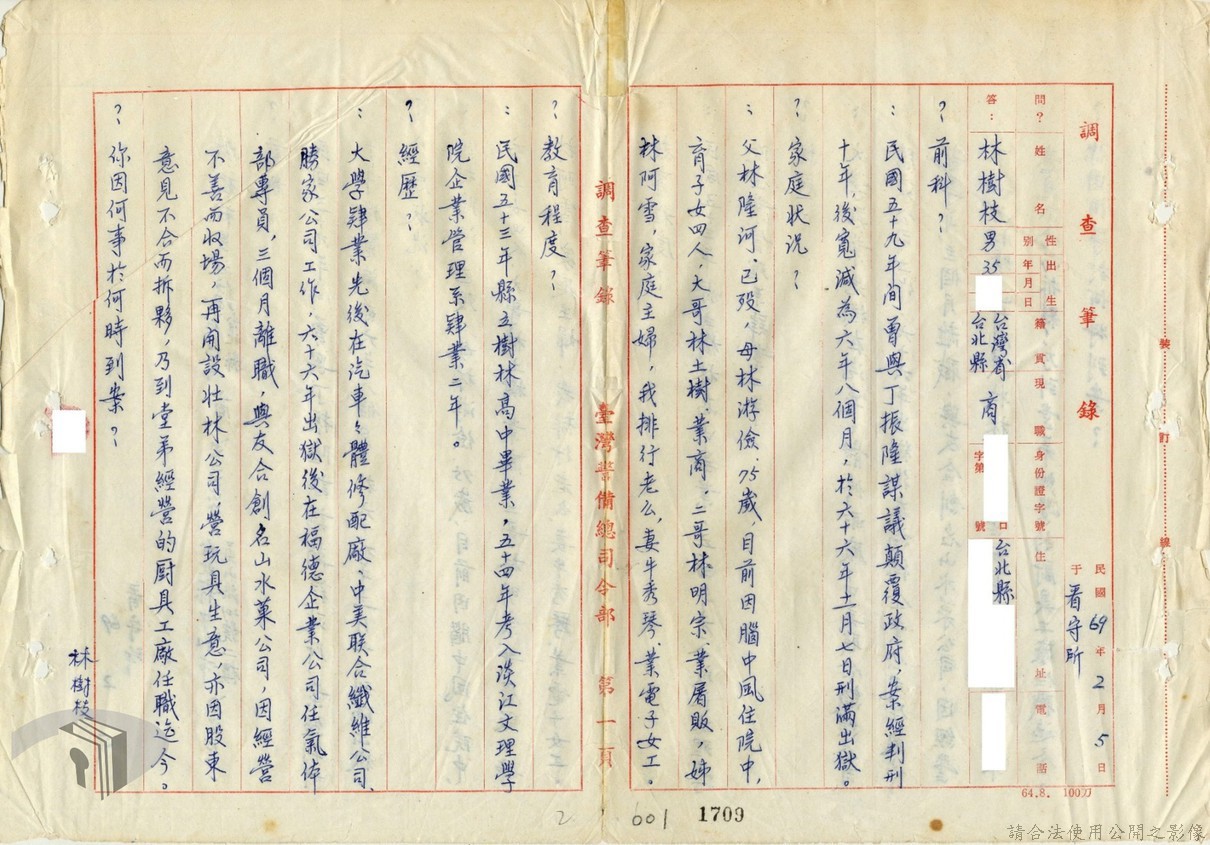 調查筆錄
民國69年2月5日
于看守所
問?
答:
姓名
性別
出生年月日
籍貫
現職
身份證字號
住址
電話
林樹枝
男
35
台灣省
台北縣
商
字第
號
台北縣
?前科?
:民國五十九年間曾與丁振隆謀議顛覆政府,案經判刑
十年,後寬減為六年八個月,於六十六年土月七日刑滿出獄。
?家庭狀況?
:父林隆河.已歿,母林游儉.75歲,目前因腦中風住院中,
育子女四人,大哥林土樹.業商.二哥林明宗業屠販,姊
林阿雪,家庭主婦,我排行老么,妻牛秀琴.業電子女工。
調查筆錄 臺灣警備總司令部 第一頁
?教育程度?
:民國五十三年縣立樹林高中畢業,五十四年考入淡江文理學
院企業管理系肄業二年。
?經歷?
:大學肄業先後在汽車々體修配廠、中美聯合纖維公司、
勝家公司工作,六十六年出獄後在福德企業公司任氣体
部專員,三個月離職,與友合創名山水菓公司,因經營
不善而收場,再開設壯林公司,營玩具生意,亦因股東
意見不合而拆夥,乃到堂弟經營的厨具工廠任職迄今。
?你因何事於何時到案?
林樹枝
裝
訂
線
64.8.
2
001
1709
請合法使用公開之影像